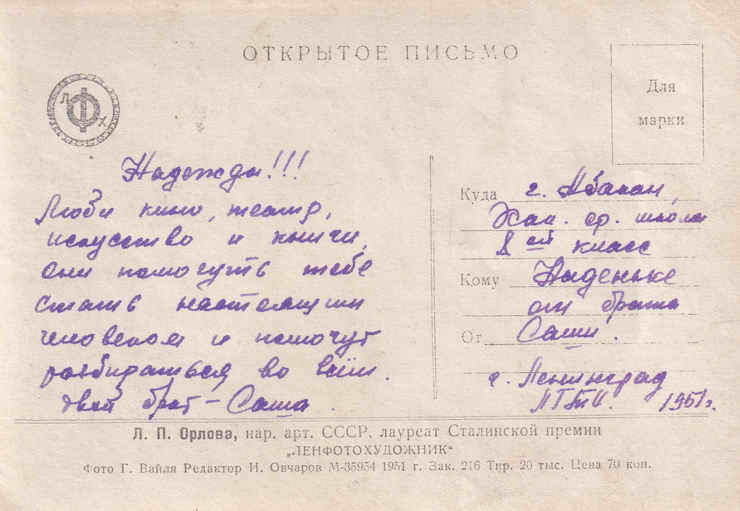 ОТКРЫТОЕ ПИСЬМО
ЛФХ
Для
марки
Надежды!!!
Люби кино, театр,
искусство и книги,
они помогуть тебе
стать настоящим
человеком и помогут
разбираться во всём.
Твой брат – Саша.
Куда г. Абакан,
Хак. ср. школа
8 ой класс
Кому Наденьке
от брата
От Саши.
г. Ленинград
ЛТТИ. 1951г.
Л. П. Орлова, нар. арт. СССР, лауреат Сталинской премии
„ЛЕНФОТОХУДОЖНИК“
Фото Г. Вайля Редактор И. Овчаров М-35954 1951 г. Зак. 216 Тир. 20 тыс. Цена 70 коп.